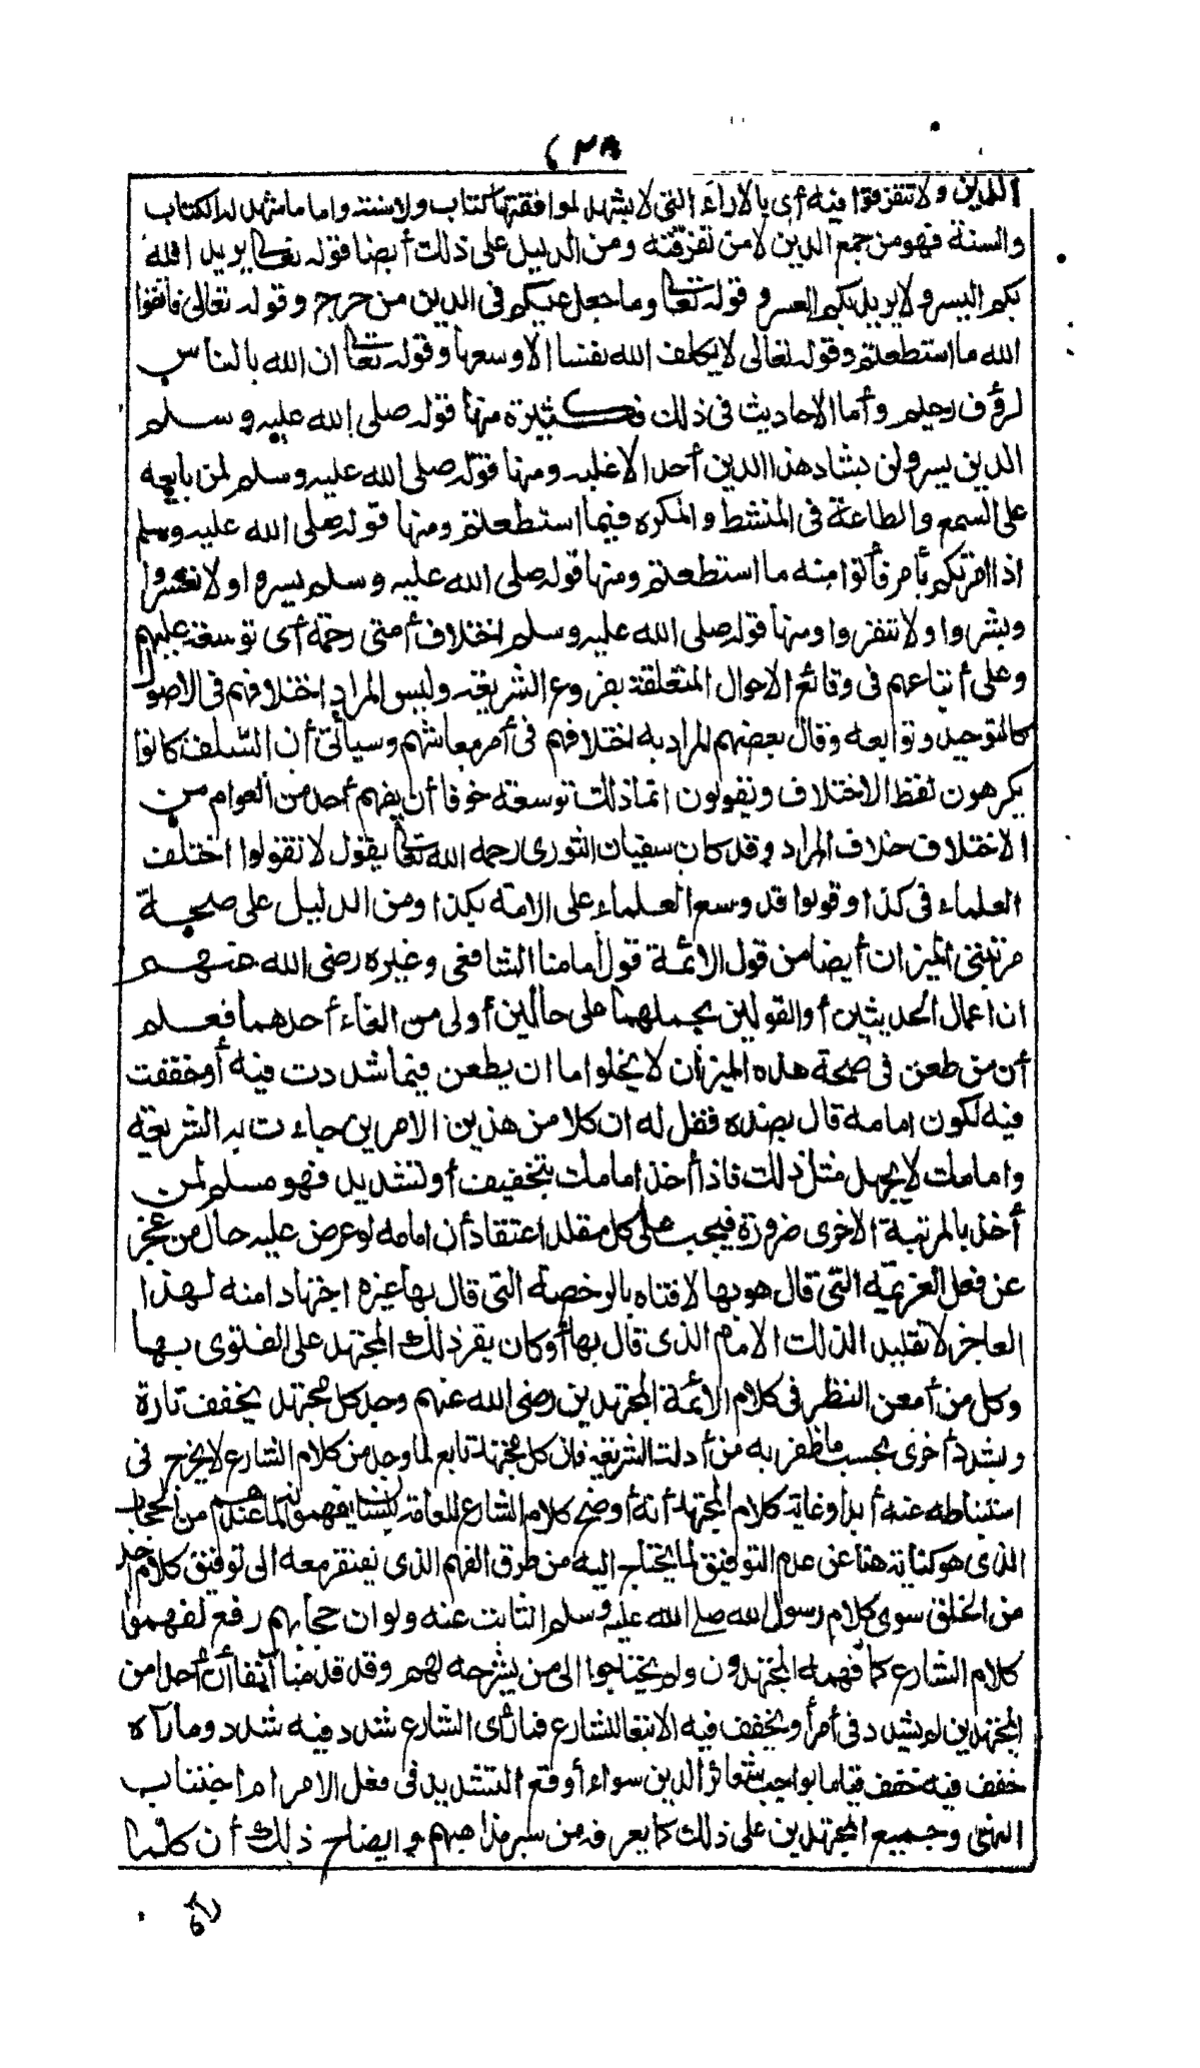 (٢٨
الدين ولا تتفرقوا فيه أى بالاراء التى لا يشهد لموافقتها كتاب ولا سنة واما ما شهد له الكتاب
والسنة فهو من جمع الدين لا من تفرقته ومن الدليل على ذلك أيضا قوله تعالى يريد الله
بكم اليسر ولا يريد بكم العسر وقوله تعالى وما جعل عليكم فى الدين من حرج وقوله تعالى فاتقوا
الله ما استطعتم وقوله تعالى لا يكلف الله نفسا الا وسعها وقوله تعالى ان الله بالناس
لرؤف رحيم وأما الاحاديث فى ذلك فكثيرة منها قوله صلى الله عليه وسلم
الدين يسر ولن يشاد هذا الدين أحد الا غلبه ومنها قوله صلى الله عليه وسلم لمن بايعه
على السمع والطاعة فى المنشط والمكره فيما استطعتم ومنها قوله صلى الله عليه وسلم
اذا امرتكم بأمر فأتوا منه ما استطعتم ومنها قوله صلى الله عليه وسلم يسروا ولا تعسروا
وبشروا ولا تنفروا ومنها قوله صلى الله عليه وسلم اختلاف أمتى رحمة أى توسعة عليهم
وعلى أتباعهم فى وقائع الاحوال المتعلقة بفروع الشريعة وليس المراد اختلافهم فى الاصول
كالتوحيد وتوابعه وقال بعضهم المراد به اختلافهم فى أمر معاشهم وسيأتى أن السلف كانوا
يكرهون لفظ الاختلاف ويقولون انما ذلك توسعة خوفا أن يفهم أحد من العوام من
الاختلاف خلاف المراد وقد كان سفيان الثورى رحمه الله تعالى يقول لا تقولوا اختلف
العلماء فى كذا وقولوا قد وسع العلماء على الامة بكذا ومن الدليل على صحة
مرتبتى الميزان أيضا من قول الائمة قول امامنا الشافعى وغيره رضى الله عنهم
ان اعمال الحديثين أو القولين بحملهما على حالين أولى من الغاء أحدهما فعلم
أن من طعن فى صحة هذه الميزان لا يخلوا اما ان يطعن فيما شددت فيه أو خففت
فيه لكون امامه قال بضده فقل له ان كلا من هذين الامرين جاءت به الشريعة
وامامك لا يجهل مثل ذلك فاذا أخذ امامك بتخفيف أو تشديد فهو مسلم لمن
أخذ بالمرتبة الاخرى ضرورة فيجب على كل مقلد اعتقاد أن امامه لو عرض عليه حال من عجز
عن فعل العزيمة التى قال هو بها لافتاه بالرخصة التى قال بها غيره اجتهادا منه لهذا
العاجز لا تقليد الذلك الامام الذى قال بها أو كان يقر ذلك المجتهد على الفتوى بها
وكل من أمعن النظر فى كلام الائمة المجتهدين رضى الله عنهم وجد كل مجتهد يخفف تارة
ويشدد أخرى بحسب ما ظفر به من أدلة الشريعة فان كل مجتهد تابع لما وجد من كلام الشارع لا يخرج فى
استنباطه عنه أبدا وغاية كلام المجتهد أنه أوضح كلام الشارع للعامة بلسان يفهمونه لما عندهم من الحجاب
الذى هو كناية هنا عن عدم التوفيق لما يحتاج اليه من طرق الفهم الذى يفتقر معه الى توفيق كلام أحد
من الخلق سوى كلام رسول الله صلى الله عليه وسلم الثابت عنه ولو ان حجابهم رفع لفهموا
كلام الشارع كما فهمه المجتهدون ولم يحتاجوا الى من يشرحه لهم وقد قدمنا آنفا أن أحدا من
المجتهدين لم يشدد فى أمر أو يخفف فيه الا تبعا للشارع فما رأى الشارع شدد فيه شدد وما رآه
خفف فيه خفف قياما بواجب شعائر الدين سواء أوقع التشديد فى فعل الامر ام اجتناب
النهى وجميع المجتهدين على ذلك كما يعرفه من سبر مذاهبهم وايضاح ذلك أن كلما